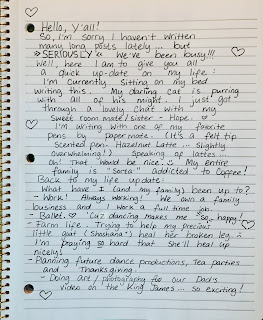 Hello, Y'all!
So, I'm sorry I haven't written
many long posts lately... but
SERIOUSLY We've been busy!!!
Well, here I am to give you all
a quick up-date on my life:
I'm currently sitting on my bed
writing this. My darling cat is purring
with all of his might. I just got
through a lovely chat with my
sweet room mate/sister - Hope.
I'm writing with one of my favorite
pens by papermate. (It's a felt tip
Scented pen- Hazelnut Latte... Slightly
Overwhelming!) Speaking of lattes...
Oh! That would be nice. My entire
family is "Sorta" Addicted" to Coffee!
Back to my life update:
What have I (and my family) been up to?
- Work! Always working! We own a family
business and I work a full time job.
- Ballet. 'Cuz dancing makes me so happy!
- Farm life - Trying to help my precious
little goat (Shoshana) heal her broken leg.
I'm praying so hard that She'll heal up
nicely!
- Planning future dance productions, Tea parties
and Thanksgiving.
- Doing art/photography for our Dad's
video on the King James... So exciting!